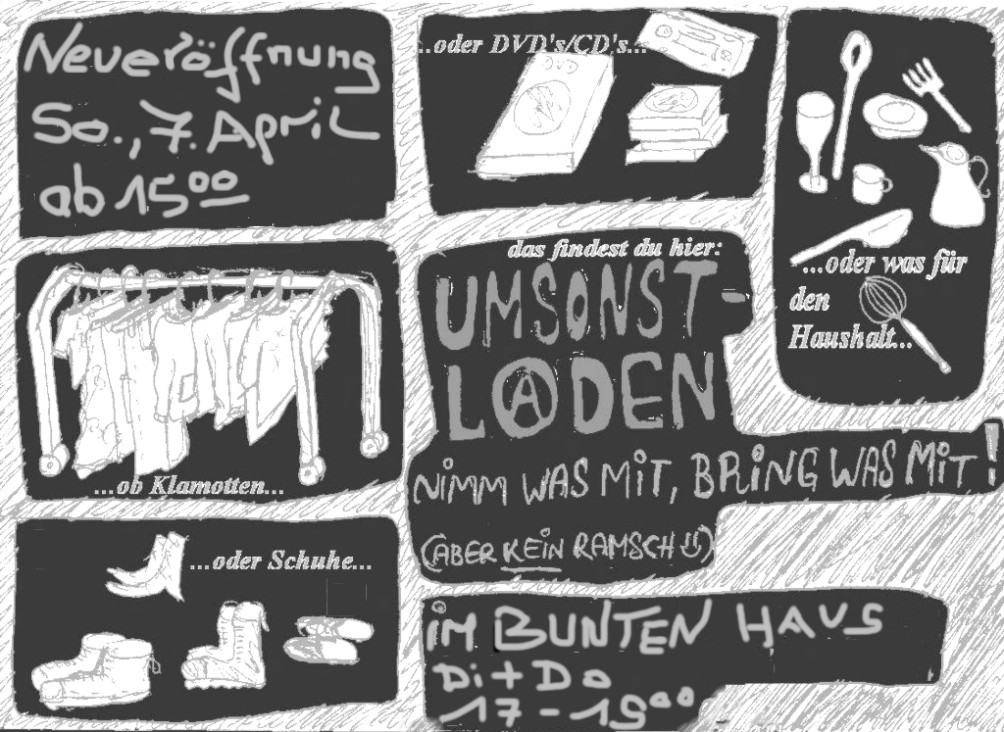 Neueröffnung
So., 7. April
ab 15ºº
...oder DVD's/CD's...
...oder was für
den
Haushalt...
das findest du hier:
UMSONST-
LADEN
NIMM WAS MIT, BRING WAS MIT!
(ABER KEIN RAMSCH :))
...ob Klamotten...
...oder Schuhe...
IM BUNTEN HAUS
Di + Do
17 - 19ºº